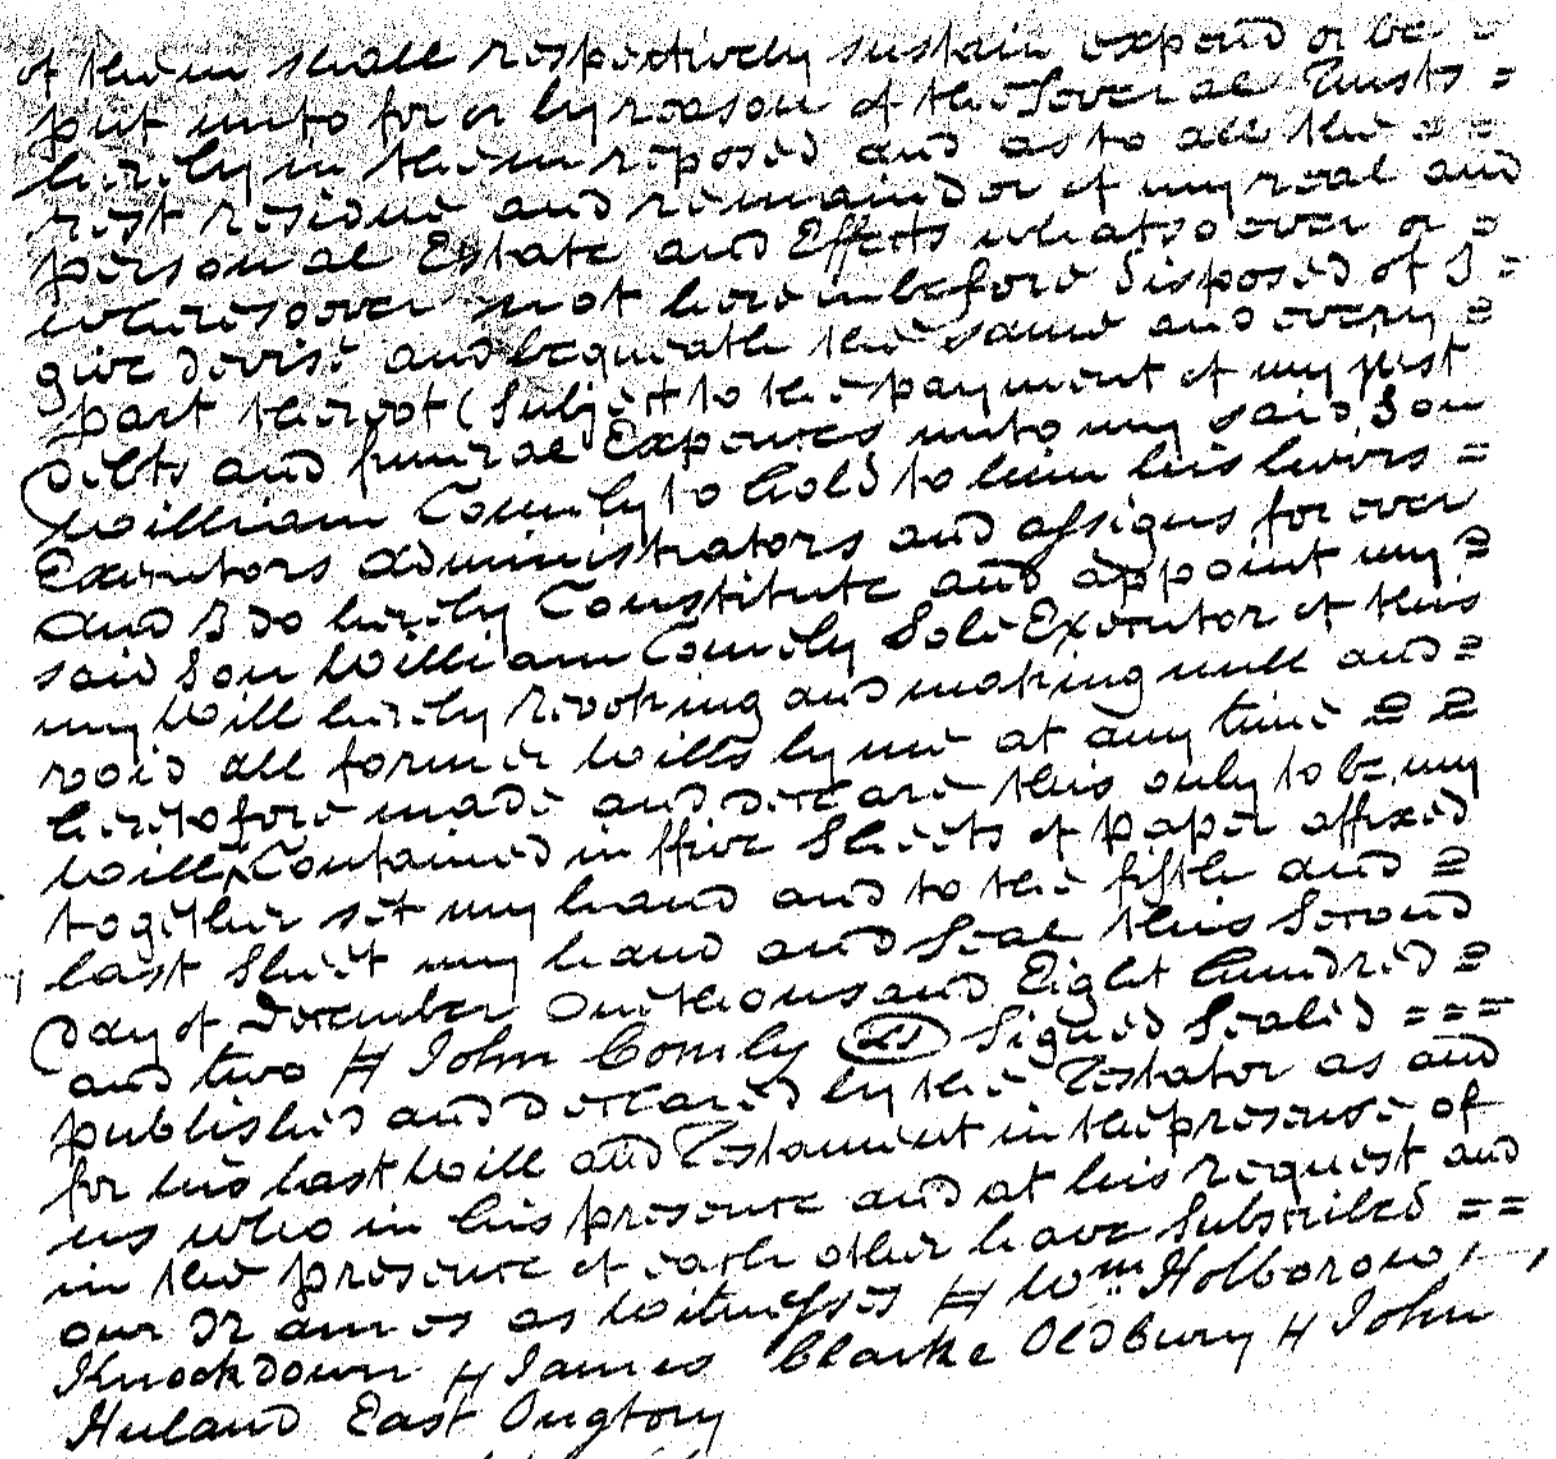 of them shall respectively sustain expend or be =
put unto for or by reason of the Several Trusts =
hereby in them reposed and as to all the = =
rest residue and remainder of my real and
personal Estate and Effects whatsoever or =
wheresoever not hereinbefore disposed of I =
give devise and bequeath the same and every =
part thereof (Subject to the payment of my just
debts and funeral Expences unto my said Son
William Comely to hold to him his heirs =
Executors Administrators and assigns for ever
And I do hereby Constitute and appoint my =
said Son William Comely Sole Executor of this
my Will hereby revoking and making null and =
void all former Wills by me at any time = =
heretofore made and declare this only to be my
Will Contained in ffive Sheets of paper affixed
together set my hand and to the fifth and =
last Sheet my hand and Seal this Second
day of December One thousand Eight hundred =
and two H John Comely LS Signed Sealed = = =
published and declared by the Testator as and
for his last Will and Testament in the presence of
us who in his presence and at his request and
in the presence of each other have Subscribed = =
our Names as Witnesses H Wm Holborow
Knockdown H James Clarke Oldbury H John
Huland East